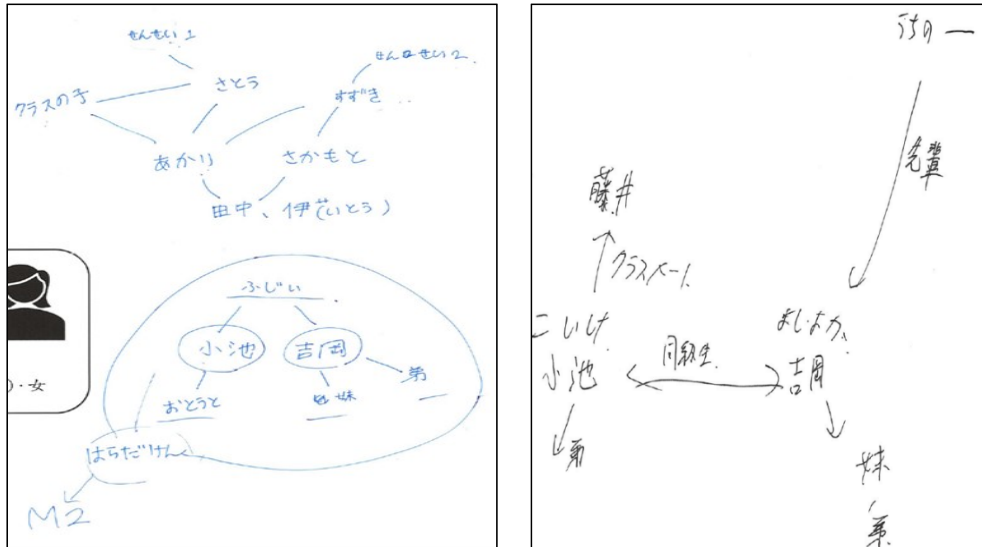 せんせい1
せんせい2
クラスの子
さとう
すずき
あかり
さかもと
田中、伊藤(いとう)
)・女
ふじい
小池
吉岡
おとうと
妹
弟
はらだけんく
M2
うちの
先輩
藤井
クラスメート
こいけ
小池
同級生
よしおか
吉岡
弟
妹
弟